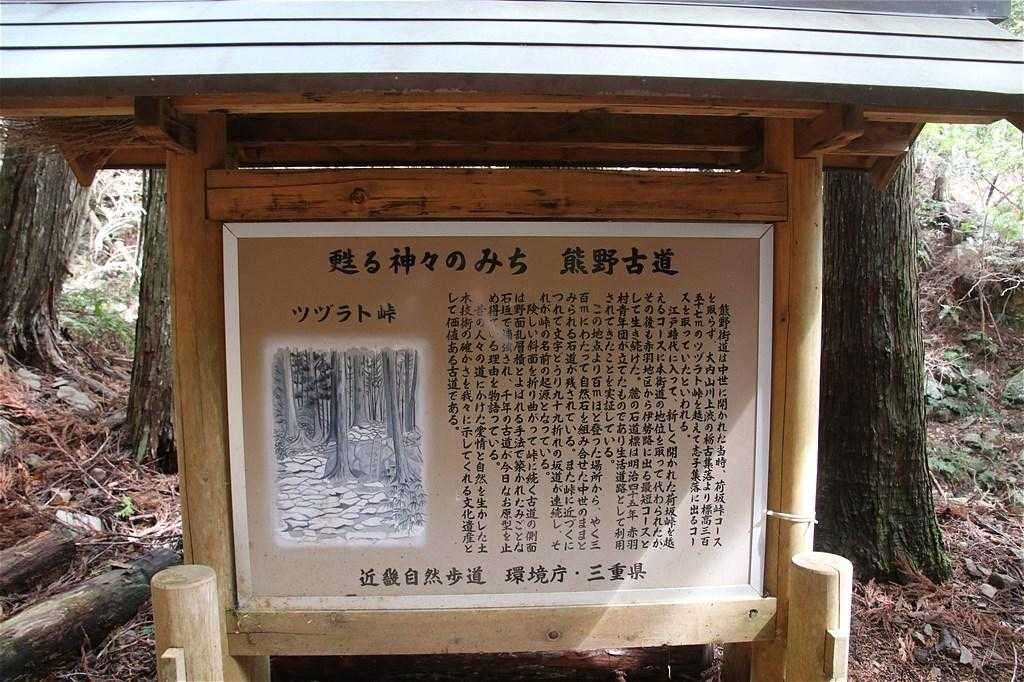 甦る神々のみち　熊野古道
ツヅラト峠
熊野街道は中世に開かれた当時、荷坂峠コース
を取らず、大内山川上流の栃古集落より標高三百
五十七mのツヅラト峠を越えて志子集落に出るコー
スを取っていたといわれる。
江戸時代に入って、新しく開かれた荷坂峠を越
えるコースに本街道の地位を取って代わられたが
その後も赤羽地区から伊勢路に出る最短コースと
して生き続けた。麓の石道標は明治四十五年赤羽
村青年団が立てたものであり生活道路として利用
されてきたことを実証している。
この地点より百mほど登った場所から、やく三
百mにわたって自然石を組み合せた中世のままと
みられる石道が残されている。また峠に近づくに
つれて文字どうり九十九折れの坂道が連続し、そ
れが峠の名前の起源となっている。
険しい斜面を折り曲がって峠に続く古道の側面
は野面乱層積とよばれる手法で築かれたみごとな
石垣で補強され、千年の古道が今日なお原型を止
め得ている理由を物語っている。
昔の人々の道にかけた愛情と自然を生かした土
木技術の確かさを我々に示してくれる文化遺産と
して価値ある古道である。
近畿自然歩道　環境庁・三重県